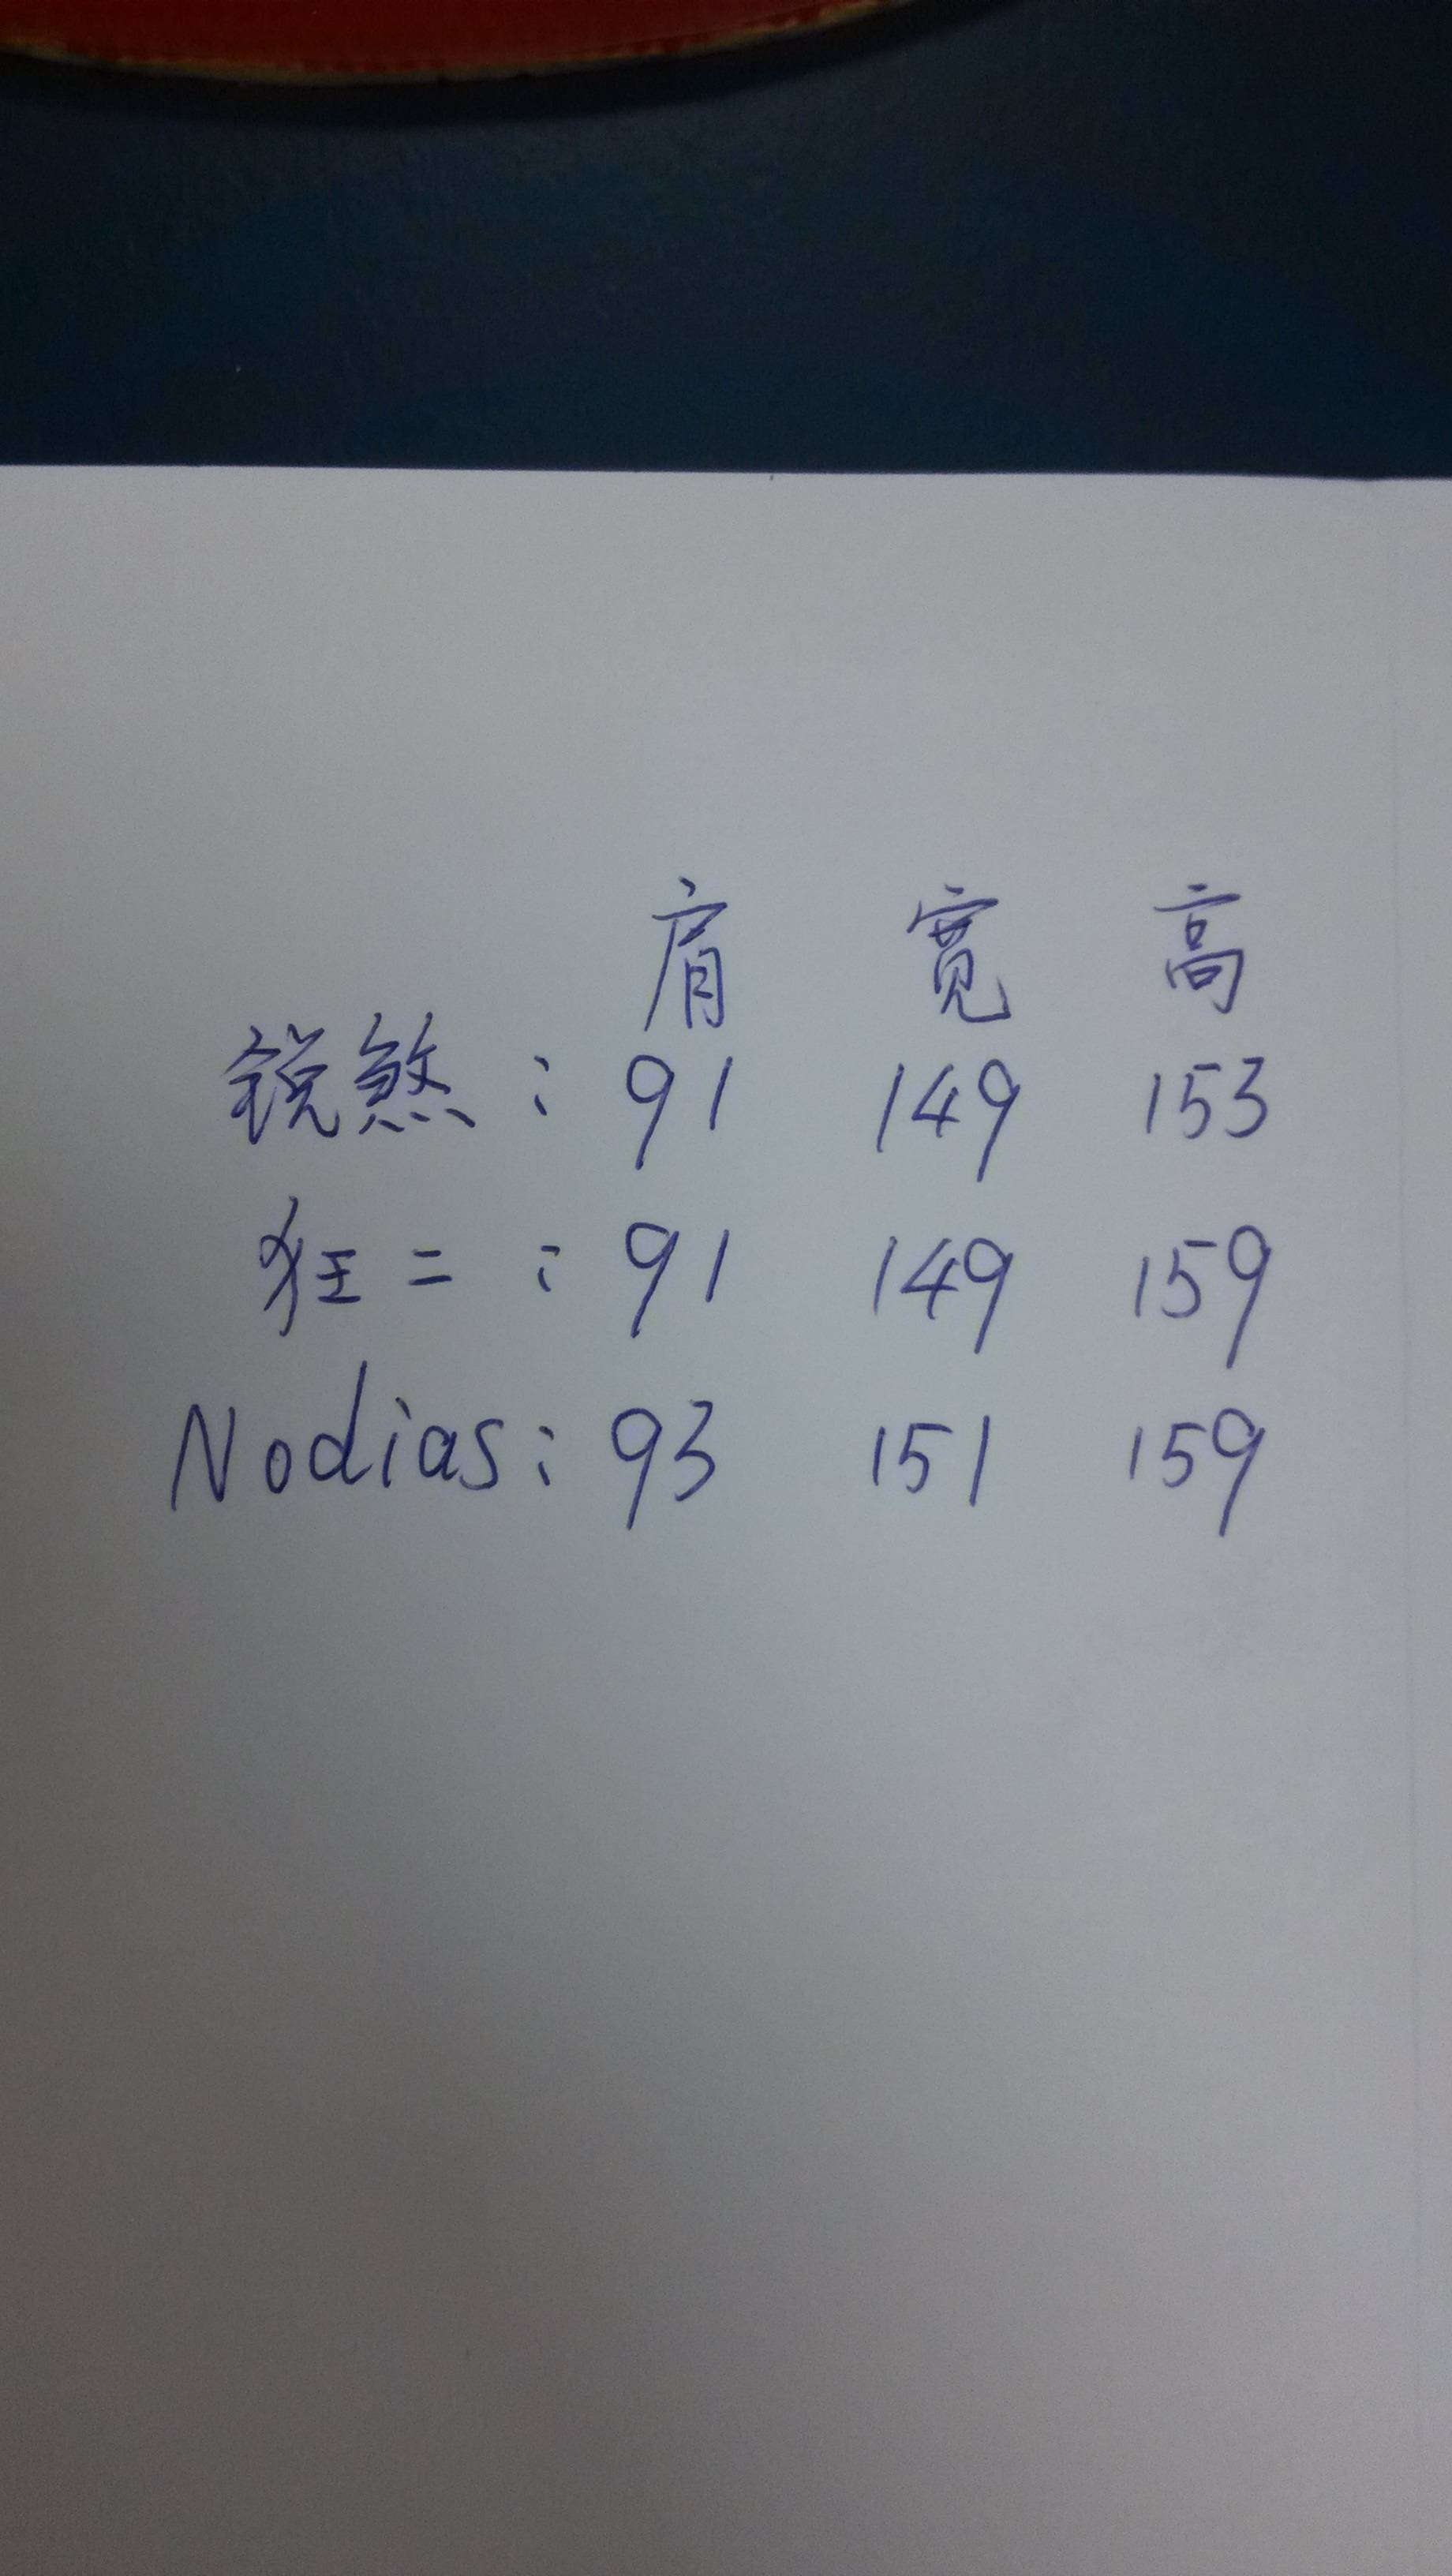 肩 宽 高
锐煞：91 149 153
狂二：91 149 159
Nodias：93 151 159